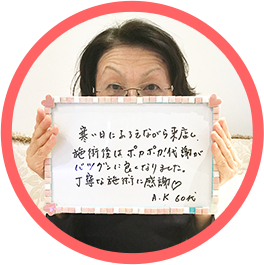 寒い日にふるえながら来店し、
施術後はポカポカ！代謝が
バツグンに良くなりました。
丁寧な施術に感謝♡
A.K 60代